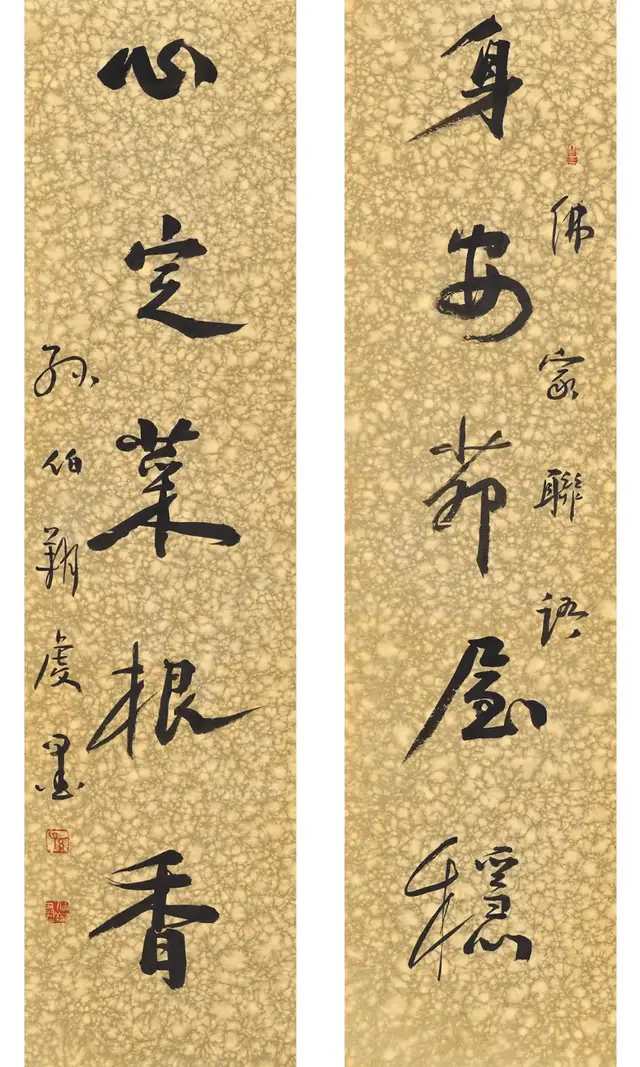 身安茆屋穩
佛家聯語
心定菜根香
孫伯翔虔墨